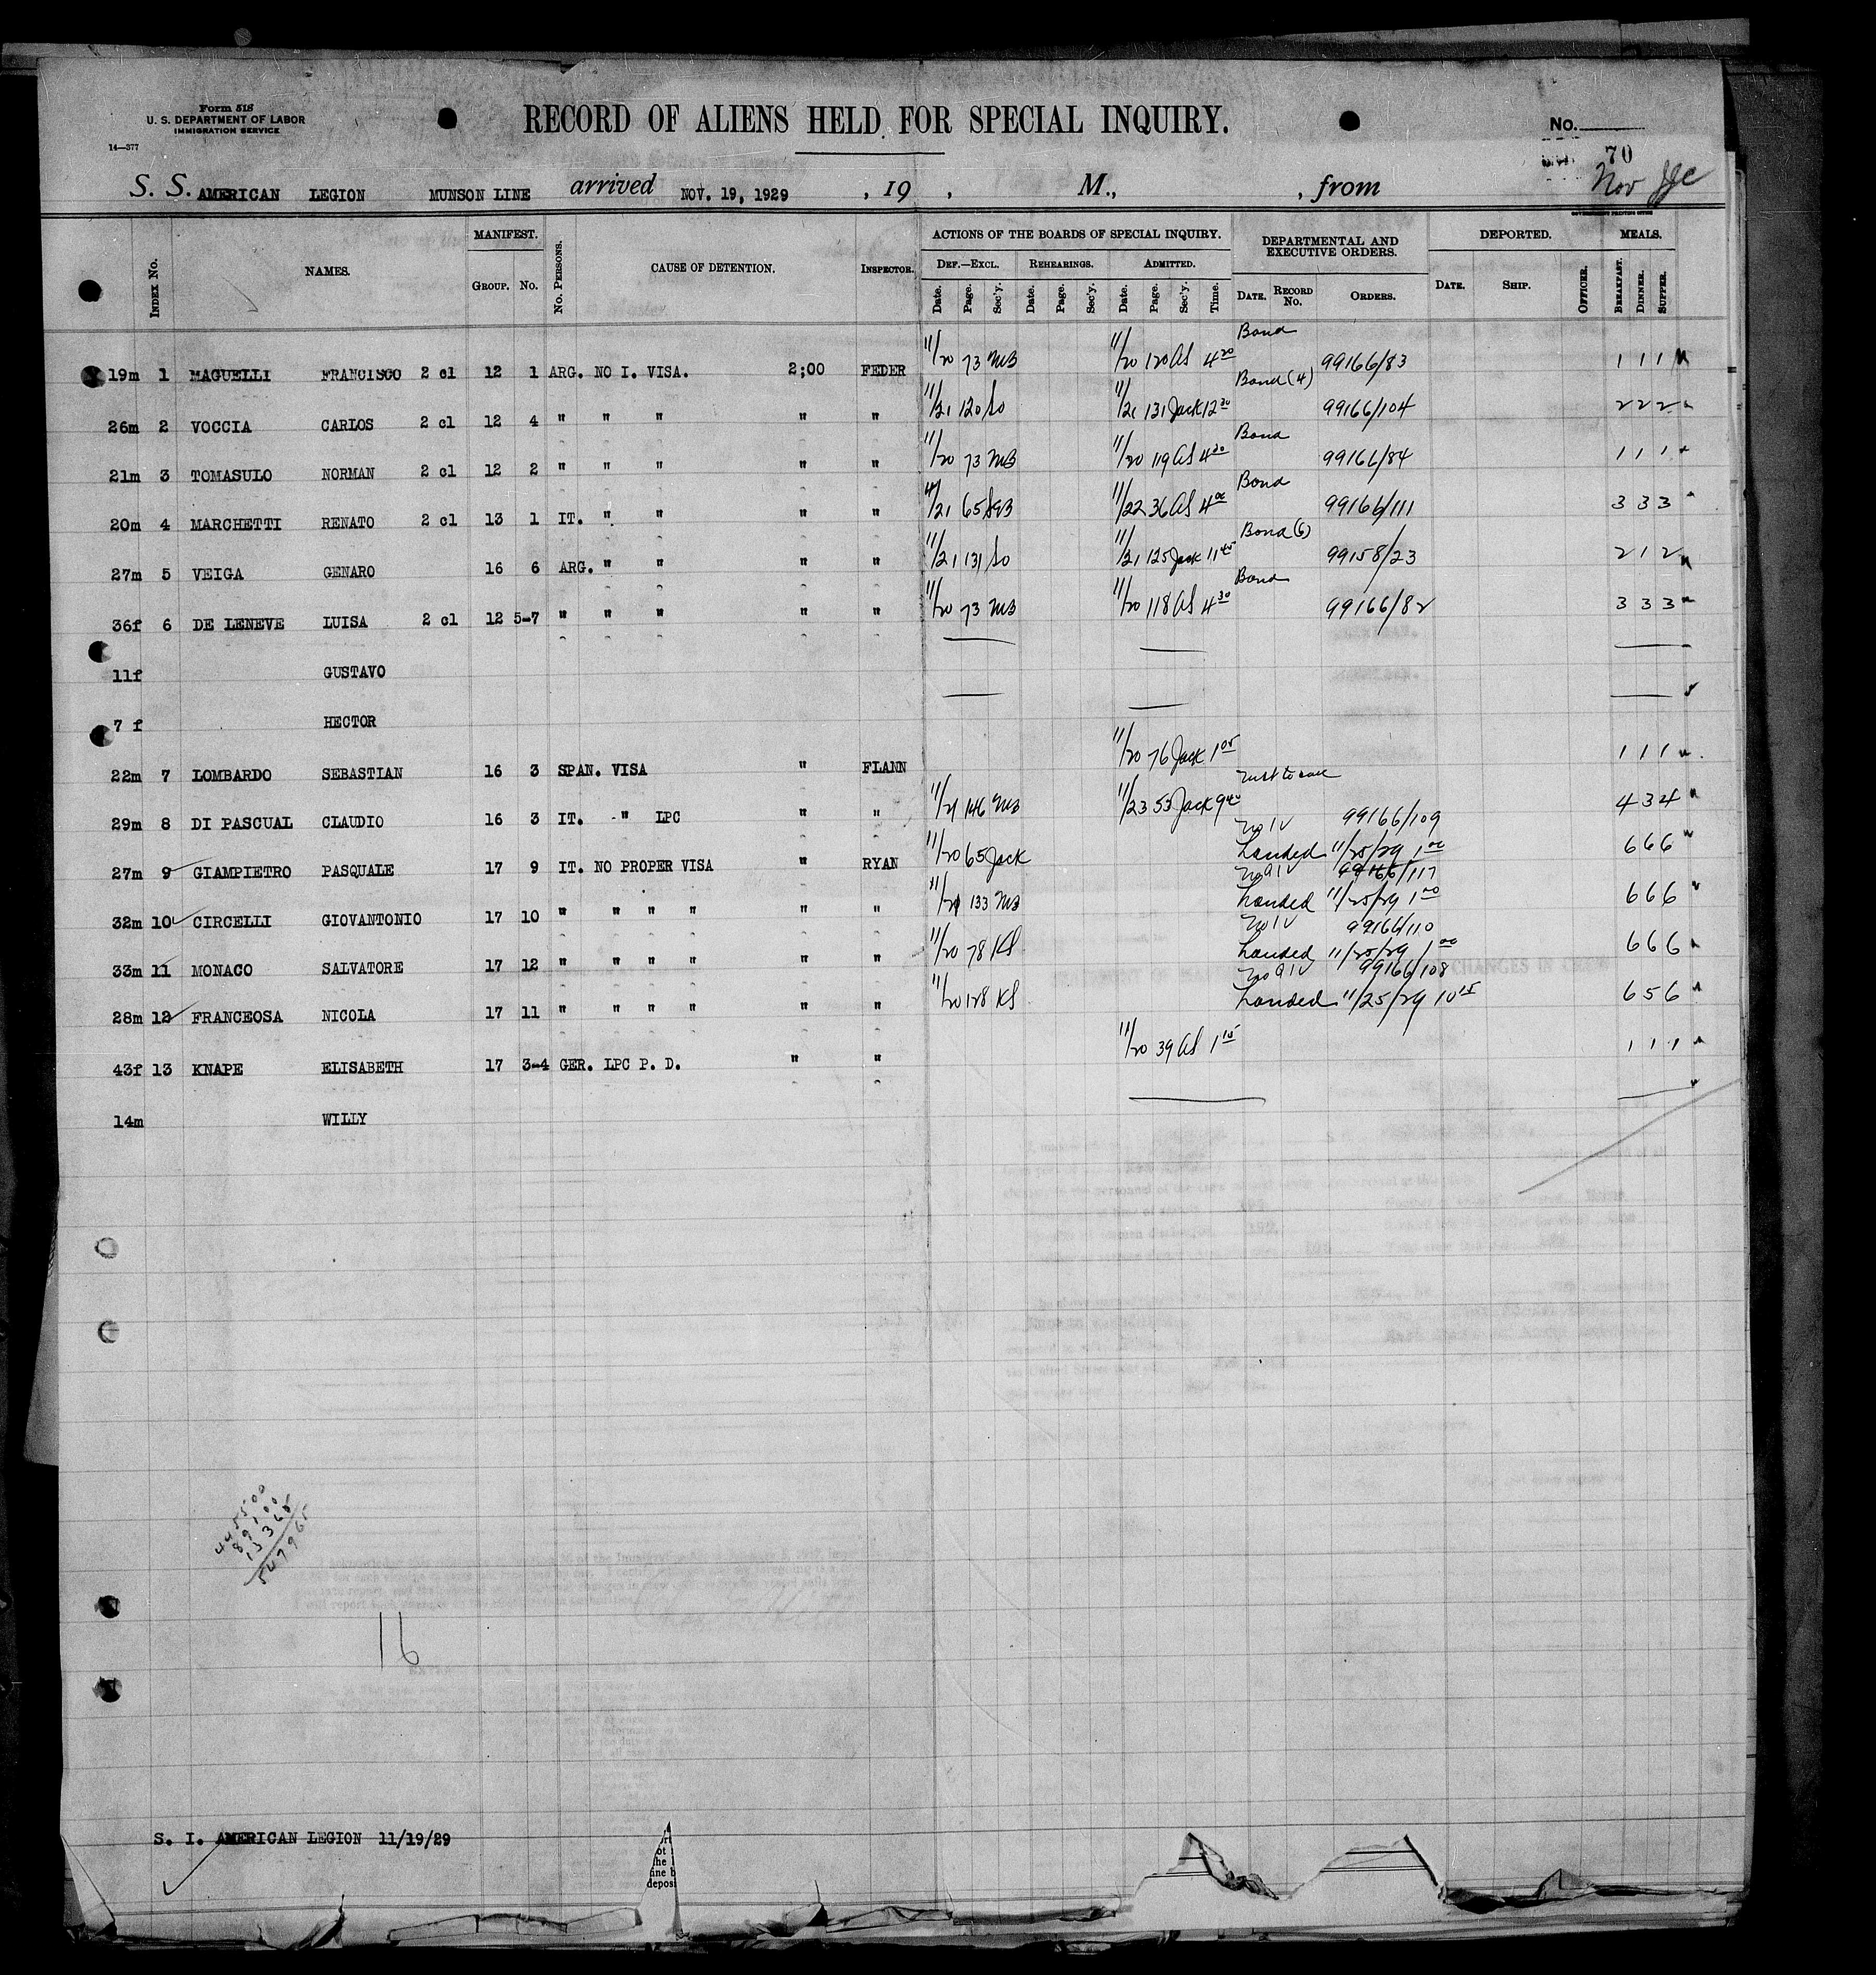 Form 518
U. S. DEPARTMENT OF LABOR
IMMIGRATION SERVICE
14—377
RECORD OF ALIENS HELD FOR SPECIAL INQUIRY.
No.
70
Nov
S. S. AMERICAN LEGION MUNSON LINE arrived NOV. 19, 1929 , 19 , M., , from
INDEX No. NAMES. MANIFEST. GROUP. No. No. PERSONS. CAUSE OF DETENTION. INSPECTOR. ACTIONS OF THE BOARDS OF SPECIAL INQUIRY. DEPARTMENTAL AND EXECUTIVE ORDERS. DEPORTED. MEALS.
DEF.—EXCL. REHEARINGS. ADMITTED.
Date. Page. Sec'y. Date. Page. Sec'y. Date. Page. Sec'y. Time. DATE. RECORD No. ORDERS. DATE. SHIP. OFFICER. BREAKFAST. DINNER. SUPPER.
19m 1 MAGUELLI FRANCISCO 2 cl 12 1 ARG. NO I. VISA. 2;00 FEDER 11/20 73 MB 11/20 120 AS 4 20 Bond 99166/83 1 1 1
26m 2 VOCCIA CARLOS 2 cl 12 4 " " " " " 11/21 120 So 11/21 131 Jack 12 30 Bond (4) 99166/104 2 2 2
21m 3 TOMASULO NORMAN 2 cl 12 2 " " " " " 11/20 73 MB 11/20 119 AS 4 30 Bond 99166/84 1 1 1
20m 4 MARCHETTI RENATO 2 cl 13 1 IT. " " " " 11/21 65 11/22 36 AS 4 00 Bond 99166/111 3 3 3
27m 5 VEIGA GENARO 16 6 ARG. " " " " 11/21 131 So 11/21 125 Jack 11 45 Bond (6) 99158/23 2 1 2
36f 6 DE LENEVE LUISA 2 cl 12 5-7 " " " " " 11/20 73 MB 11/20 118 AS 4 30 Bond 99166/82 3 3 3
11f GUSTAVO
7 f HECTOR
22m 7 LOMBARDO SEBASTIAN 16 3 SPAN. VISA " FLANN 11/20 76 Jack 1 05 1 1 1
29m 8 DI PASCUAL CLAUDIO 16 3 IT. " LPC " " 11/21 146 MB 11/23 53 Jack 9 40 99166/109 4 3 4
27m 9 GIAMPIETRO PASQUALE 17 9 IT. NO PROPER VISA " RYAN 11/20 65 Jack Landed 11/25/29 1 00 6 6 6
99166/117
32m 10 CIRCELLI GIOVANTONIO 17 10 " " " " " " 11/21 133 MB Landed 11/25/29 1 00 6 6 6
99166/110
33m 11 MONACO SALVATORE 17 12 " " " " " " 11/20 78 KS Landed 11/25/29 1 00 6 6 6
99166/108
28m 12 FRANCEOSA NICOLA 17 11 " " " " " " 11/20 128 KS Landed 11/25/29 10 15 6 5 6
43f 13 KNAPE ELISABETH 17 3-4 GER. LPC P. D. " " 11/20 39 AS 1 15 1 1 1
14m WILLY
445500
89100
13365
547965
16
S. I. AMERICAN LEGION 11/19/29